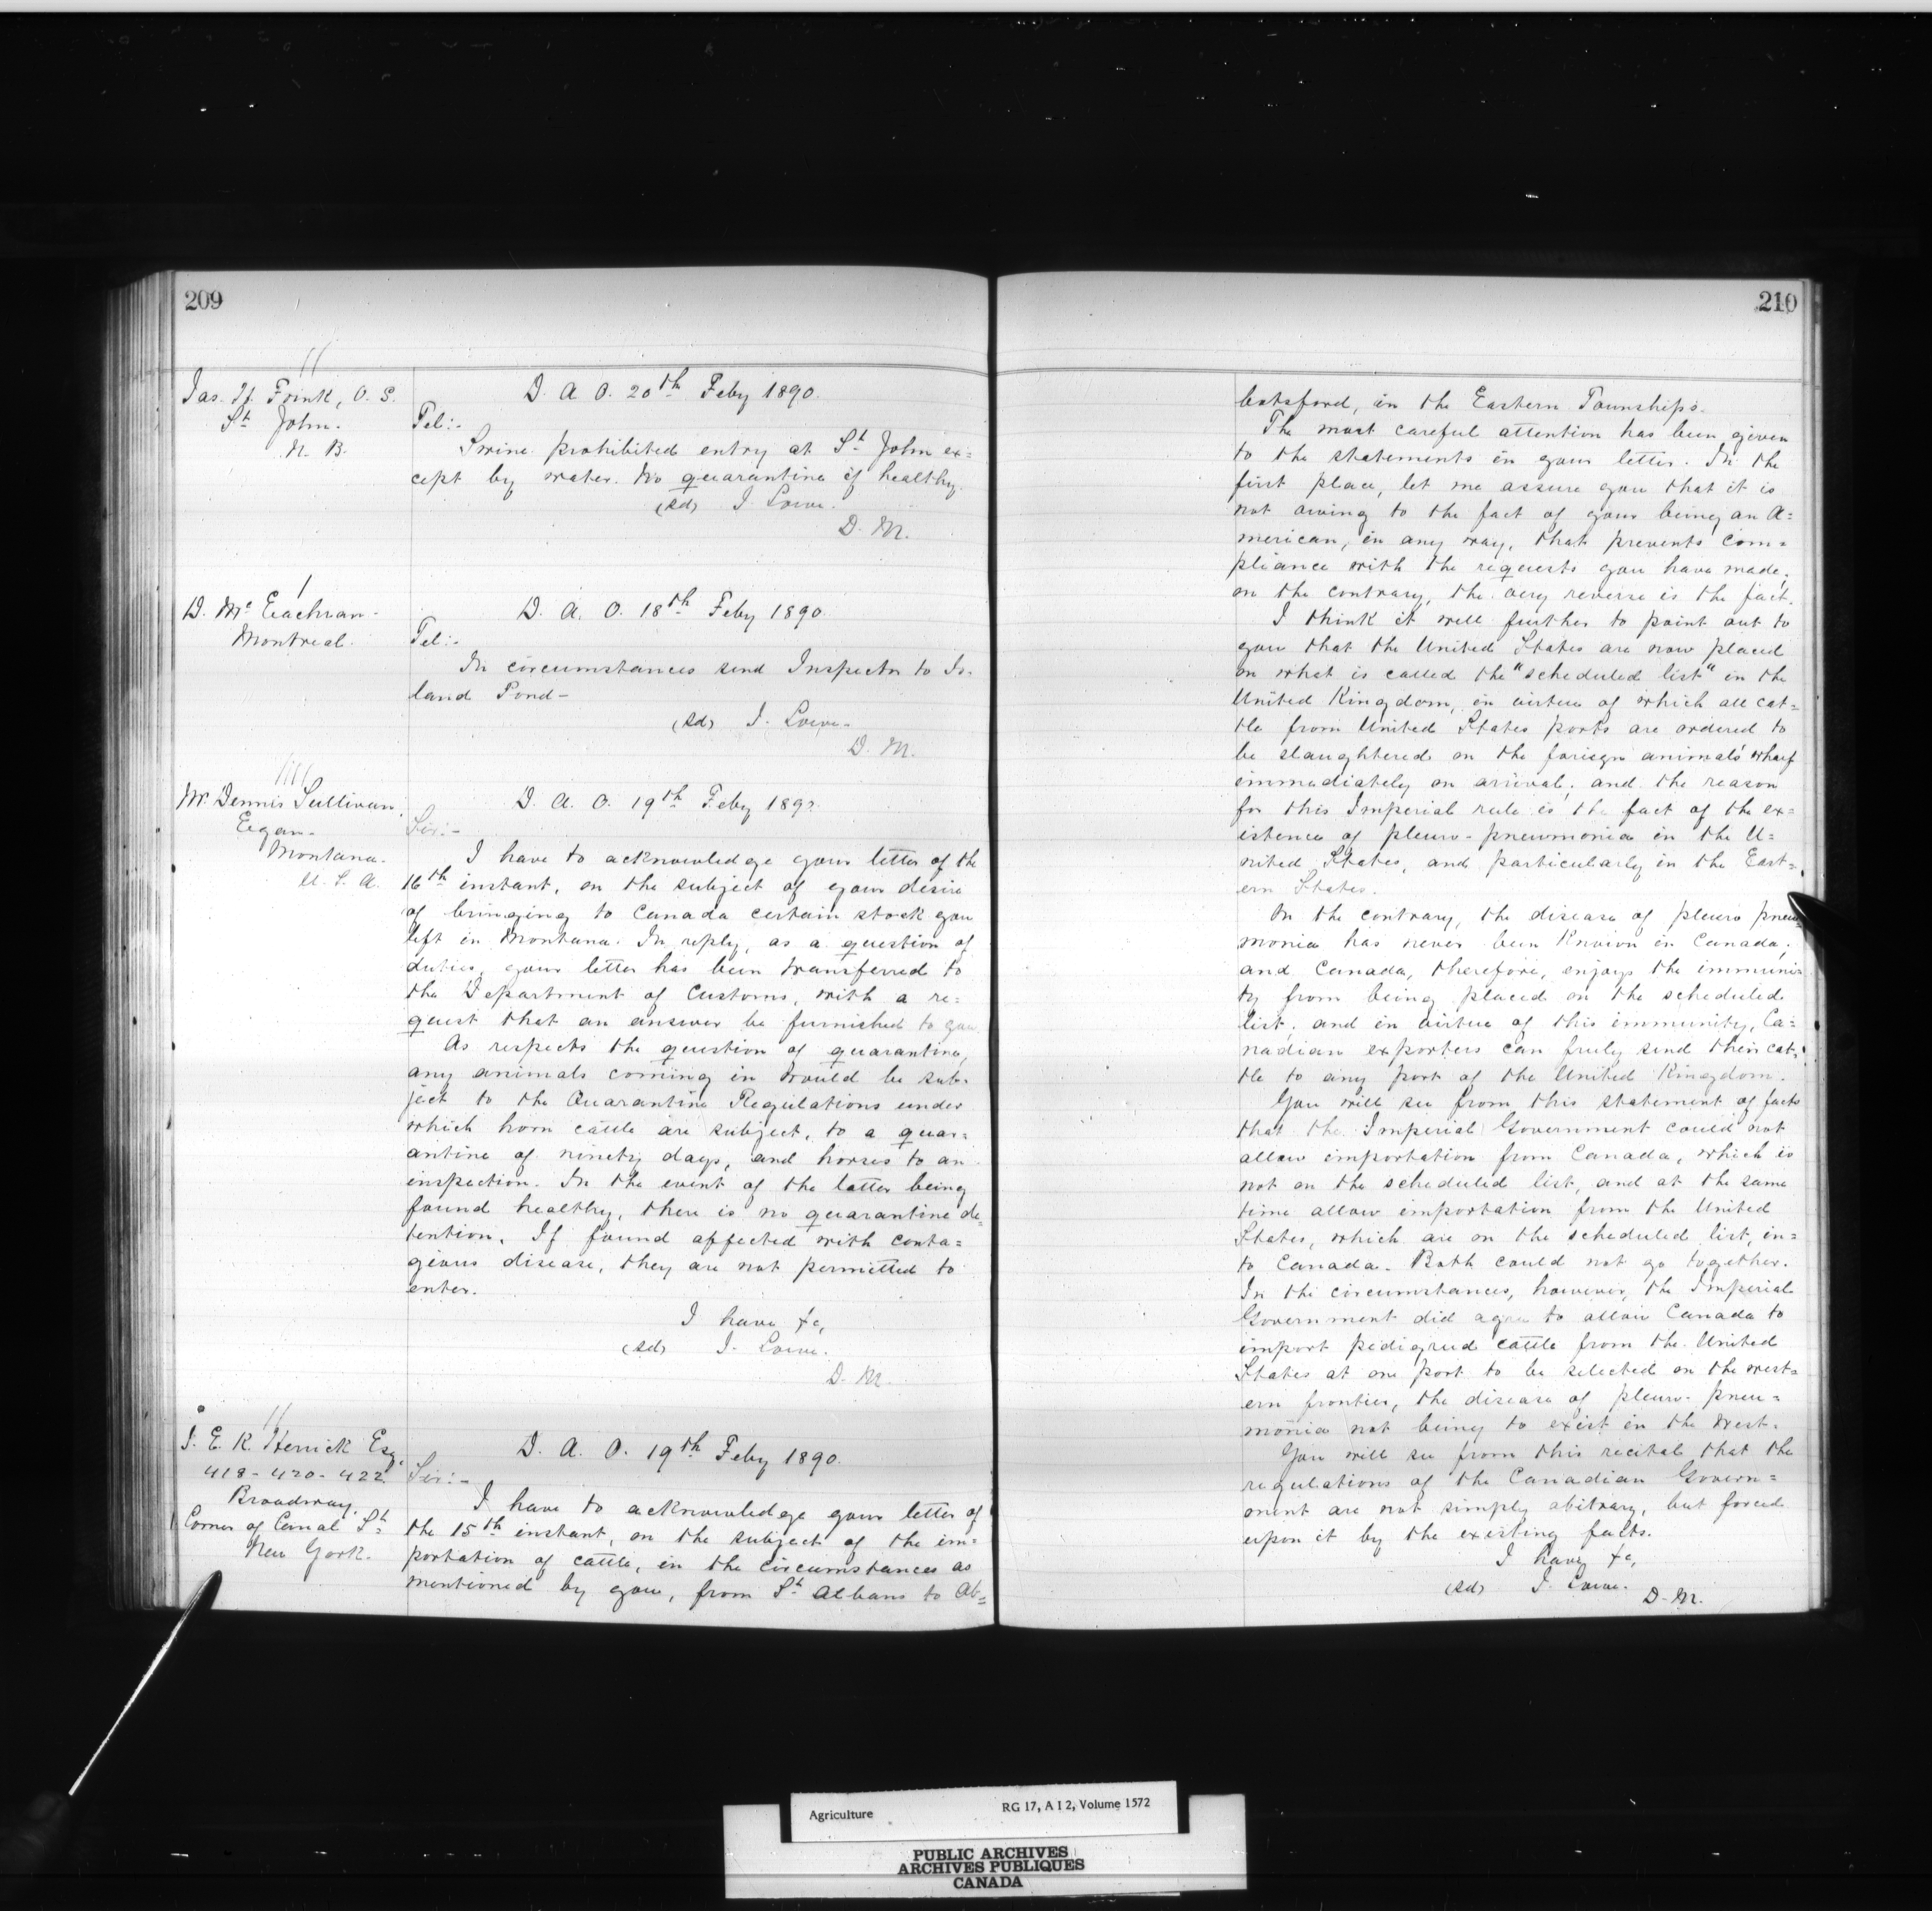 209
Jas. H. Frink, V. S.
St. John.
N. B.
D. A. O. 20th Feby 1890.
Tel:-
Swine prohibited entry at St John ex=
cept by water. No quarantine if healthy.
(sd) J. Lowe.
D. M.
D. Mc Eachran
Montreal.
D. A. O. 18th Feby 1890
Tel:-
In circumstances send Inspector to Is-
land Pond -
(sd) J. Lowe.
D. M.
Mr Dennis Sullivan,
Egan -
Montana.
U. S. A.
D. A. O. 19th Feby 1890.
Sir:-
I have to acknowledge your letter of the
16th instant, on the subject of your desire
of bringing to Canada certain stock you
left in Montana. In reply, as a question of
duties, your letter has been transferred to
the Department of Customs, with a re=
quest that an answer be furnished to you.
As respects the question of quarantine,
any animals coming in would be sub-
ject to the Quarantine Regulations under
which horn cattle are subject, to a quar=
antine of ninety days, and horses to an
inspection. In the event of the latter being
found healthy, there is no quarantine de=
tention. If found affected with conta=
gious disease, they are not permitted to
enter.
I have &c,
(sd) J. Lowe.
D. M.
J. E. K. Herrick Esq.
418 - 420 - 422
Broadway.
Corner of Canal St.
New York.
D. A. O. 19th Feby 1890.
Sir:-
I have to acknowledge your letter of
the 15th instant, on the subject of the im=
portation of cattle, in the circumstances as
mentioned by you, from St Albans to Ab=
210
botsford, in the Eastern Townships.
The most careful attention has been given
to the statements in your letter. In the
first place, let me assure you that it is
not owing to the fact of your being an A=
merican, in any way, that prevents com=
pliance with the requests you have made;
on the contrary, the very reverse is the fact.
I think it well further to point out to
you that the United States are now placed
on what is called the "scheduled list" in the
United Kingdom, in virtue of which all cat=
tle from United States ports are ordered to
be slaughtered on the foreign animals' wharf
immediately on arrival; and the reason
for this Imperial rule is the fact of the ex=
istence of pleuro-pneumonia in the U=
nited States, and particularly in the East=
ern States.
On the contrary, the disease of pleuro pneu=
monia has never been known in Canada;
and Canada, therefore, enjoys the immuni=
ty from being placed on the scheduled
list; and in virtue of this immunity, Ca=
nadian exporters can freely send their cat=
tle to any port of the United Kingdom.
You will see from this statement of facts
that the Imperial Government could not
allow importation from Canada, which is
not on the scheduled list, and at the same
time allow importation from the United
States, which are on the scheduled list, in=
to Canada. Both could not go together.
In the circumstances, however, the Imperial
Government did agree to allow Canada to
import pedigreed cattle from the United
States at one port to be selected on the west=
ern frontier, the disease of pleuro-pneu=
monia not being to exist in the West.
You will see from this recital that the
regulations of the Canadian Govern=
ment are not simply abitrary, but forced
upon it by the existing facts.
I have &c,
(sd) J. Lowe.
D. M.
Agriculture RG 17, A I 2, Volume 1572
PUBLIC ARCHIVES
ARCHIVES PUBLIQUES
CANADA